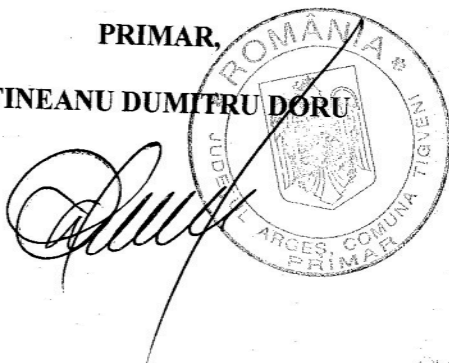 PRIMAR,
TINEANU DUMITRU DORU
ROMÂNIA
JUDEȚUL ARGEȘ, COMUNA TIGVENI
PRIMAR